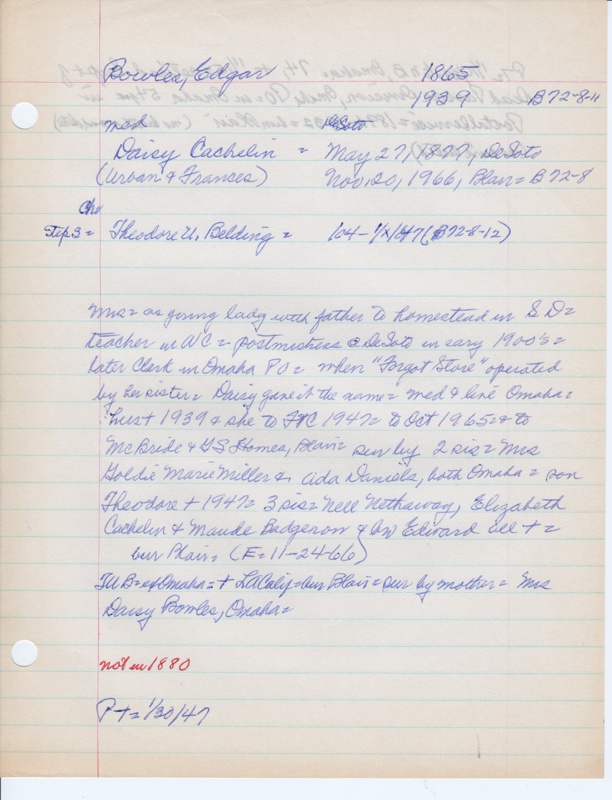 Bowles, Edgar 1865
1939 B72-8-11
med DeSoto
Daisy Cachelin = May 27, 1877, DeSoto
(Urban & Frances) Nov. 20, 1966, Blair = B72-8
Chr
Step 3 = Theodore U. Belding = 104-1/X/47 (B72-8-12)
Mrs = as young lady with father to homestead in S D =
teacher in WC = postmistress @ DeSoto in eary 1900's =
later Clerk in Omaha PO = when "Forgot Store" operated
by her sister = Daisy gave it the name = med & live Omaha =
Hus + 1939 & she to 1947 = to Oct 1965 = & to
McBride & GS Homes, Blair = sur by 2 sis = Mrs
Goldie Marie Miller & Ada Daniels, both Omaha = son
Theodore + 1947 = 3 sis = Nell Nethaway, Elizabeth
Cachelin & Maude Badgerow & bro Edward all + =
bur Blair = (E = 11-24-66)
TUB = of Omaha = + LA Calif = bur Blair = sur by mother = Mrs
Daisy Bowles, Omaha =
not in 1880
P + = 1/30/47